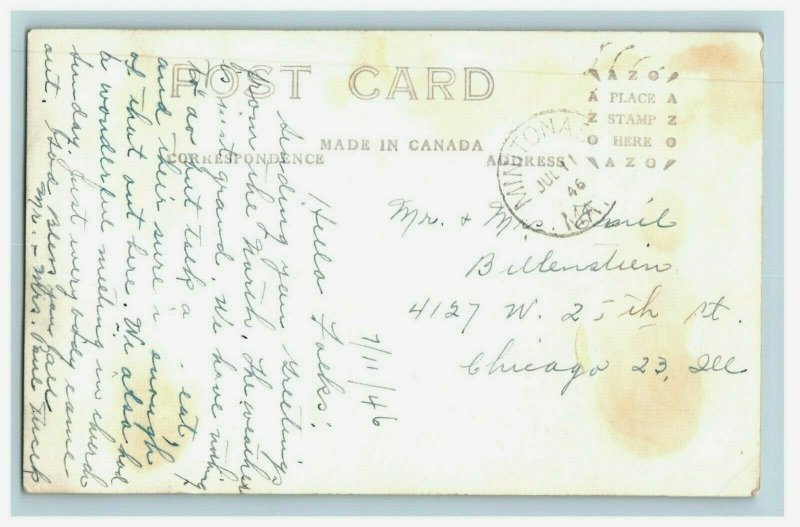 POST CARD
MADE IN CANADA
CORRESPONDENCE ADDRESS
AZO
PLACE
STAMP
HERE
AZO
AZO
AZO
MINITONAS
JUL 11
46
MAN.
Mr. + Mrs. Emil
Bittenstien
4127 W. 25th St.
Chicago 23, Ill
7/11/46
Hello Folks:
Sending you Greetings
from the North. The weather
is just grand. We have nothing
to do but talk & eat,
and their sure is enough
of that out here. We also had
a wonderful meeting in church
Sunday. Just everybody came
out. God Bless you all
Mr. + Mrs. Paul